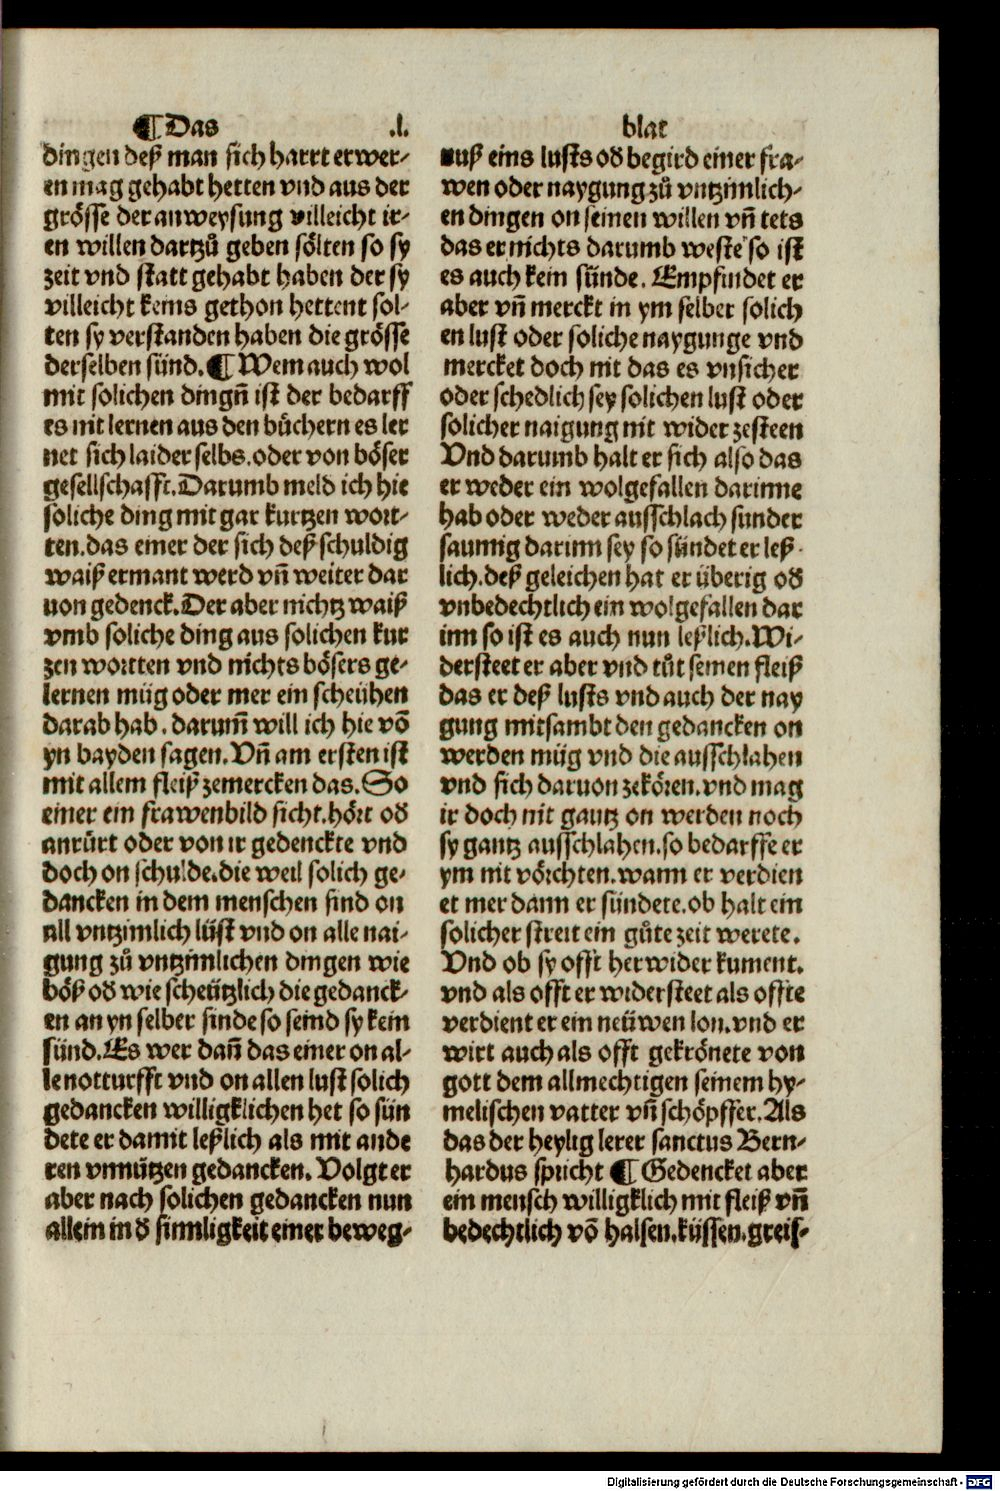 ¶ Das .l. blat
dingen deß man sich harrt erwer⸗
en mag gehabt hetten vnd aus der
grösse der anweysung villeicht ir⸗
en willen dartzů geben sölten so sy
zeit vnd statt gehabt haben der sy
villeicht keins gethon hettent sol⸗
ten sy verstanden haben die grösse
derselben sünd. ¶ Wem auch wol
mit solichen dingn̄ ist der bedarff
es nit lernen aus den bůchern es ler
net sich laider selbs. oder von böser
gesellschafft. Darumb meld ich hie
soliche ding mit gar kurtzen wort⸗
ten. das einer der sich deß schuldig
waiß ermant werd vn̄ weiter dar
uon gedenck. Der aber nichtz waiß
vmb soliche ding aus solichen kur
zen wortten vnd nichts bösers ge⸗
lernen müg oder mer ein scheühen
darab hab. darum̄ will ich hie vō
yn bayden sagen. Vn̄ am ersten ist
mit allem fleiß zemercken das. So
einer ein frawenbild sicht. hört oď
anrürt oder von ir gedenckte vnd
doch on schulde. die weil solich ge⸗
dancken in dem menschen sind on
all vntzimlich lüst vnd on alle nai⸗
gung zů vntzimlichen dingen wie
böß oď wie scheützlich die gedanck⸗
en an yn selber sinde so seind sy kein
sünd. Es wer dan̄ das einer on al⸗
le notturfft vnd on allen lust solich
gedancken willigklichen het so sün
dete er damit leßlich als mit ande
ren vnnützen gedancken. Volgt er
aber nach solichen gedancken nun
allein in ď sinnligkeit einer beweg⸗
nuß eins lusts oď begird einer fra⸗
wen oder naygung zů vntzimlich⸗
en dingen on seinen willen vn̄ tets
das er nichts darumb weste so ist
es auch kein sünde. Empfindet er
aber vn̄ merckt in ym selber solich
en lust oder soliche naygunge vnd
mercket doch nit das es vnsicher
oder schedlich sey solichen lust oder
solicher naigung nit wider zesteen
Vnd darumb halt er sich also das
er weder ein wolgefallen darinne
hab oder weder ausschlach sunder
saumig darinn sey so sündet er leß⸗
lich. deß geleichen hat er überig oď
vnbedechtlich ein wolgefallen dar
inn so ist es auch nun leßlich. Wi⸗
dersteet er aber vnd tůt seinen fleiß
das er deß lusts vnd auch der nay
gung mitsambt den gedancken on
werden müg vnd die ausschlahen
vnd sich daruon zekören. vnd mag
ir doch nit gantz on werden noch
sy gantz ausschlahen. so bedarffe er
ym nit vörchten. wann er verdien
et mer dann er sündete. ob halt ein
solicher streit ein gůte zeit werete.
Vnd ob sy offt herwider kument.
vnd als offt er widersteet als offte
verdient er ein neüwen lon. vnd er
wirt auch als offt gekrönete von
gott dem allmechtigen seinem hy⸗
melischen vatter vn̄ schöpffer. Als
das der heylig lerer sanctus Bern⸗
hardus spricht ¶ Gedencket aber
ein mensch willigklich mit fleiß vn̄
bedechtlich vō halsen. küssen. greif⸗
Digitalisierung gefördert durch die Deutsche Forschungsgemeinschaft - DFG